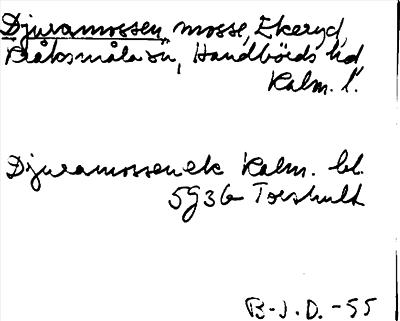 Djuramossen, mosse, Ekeryd,
Bråksmåla sn, Handbörds hd
Kalm. l.
Djuramossen ek Kalm. bl.
5G3b Torshult
B-J.D. -55